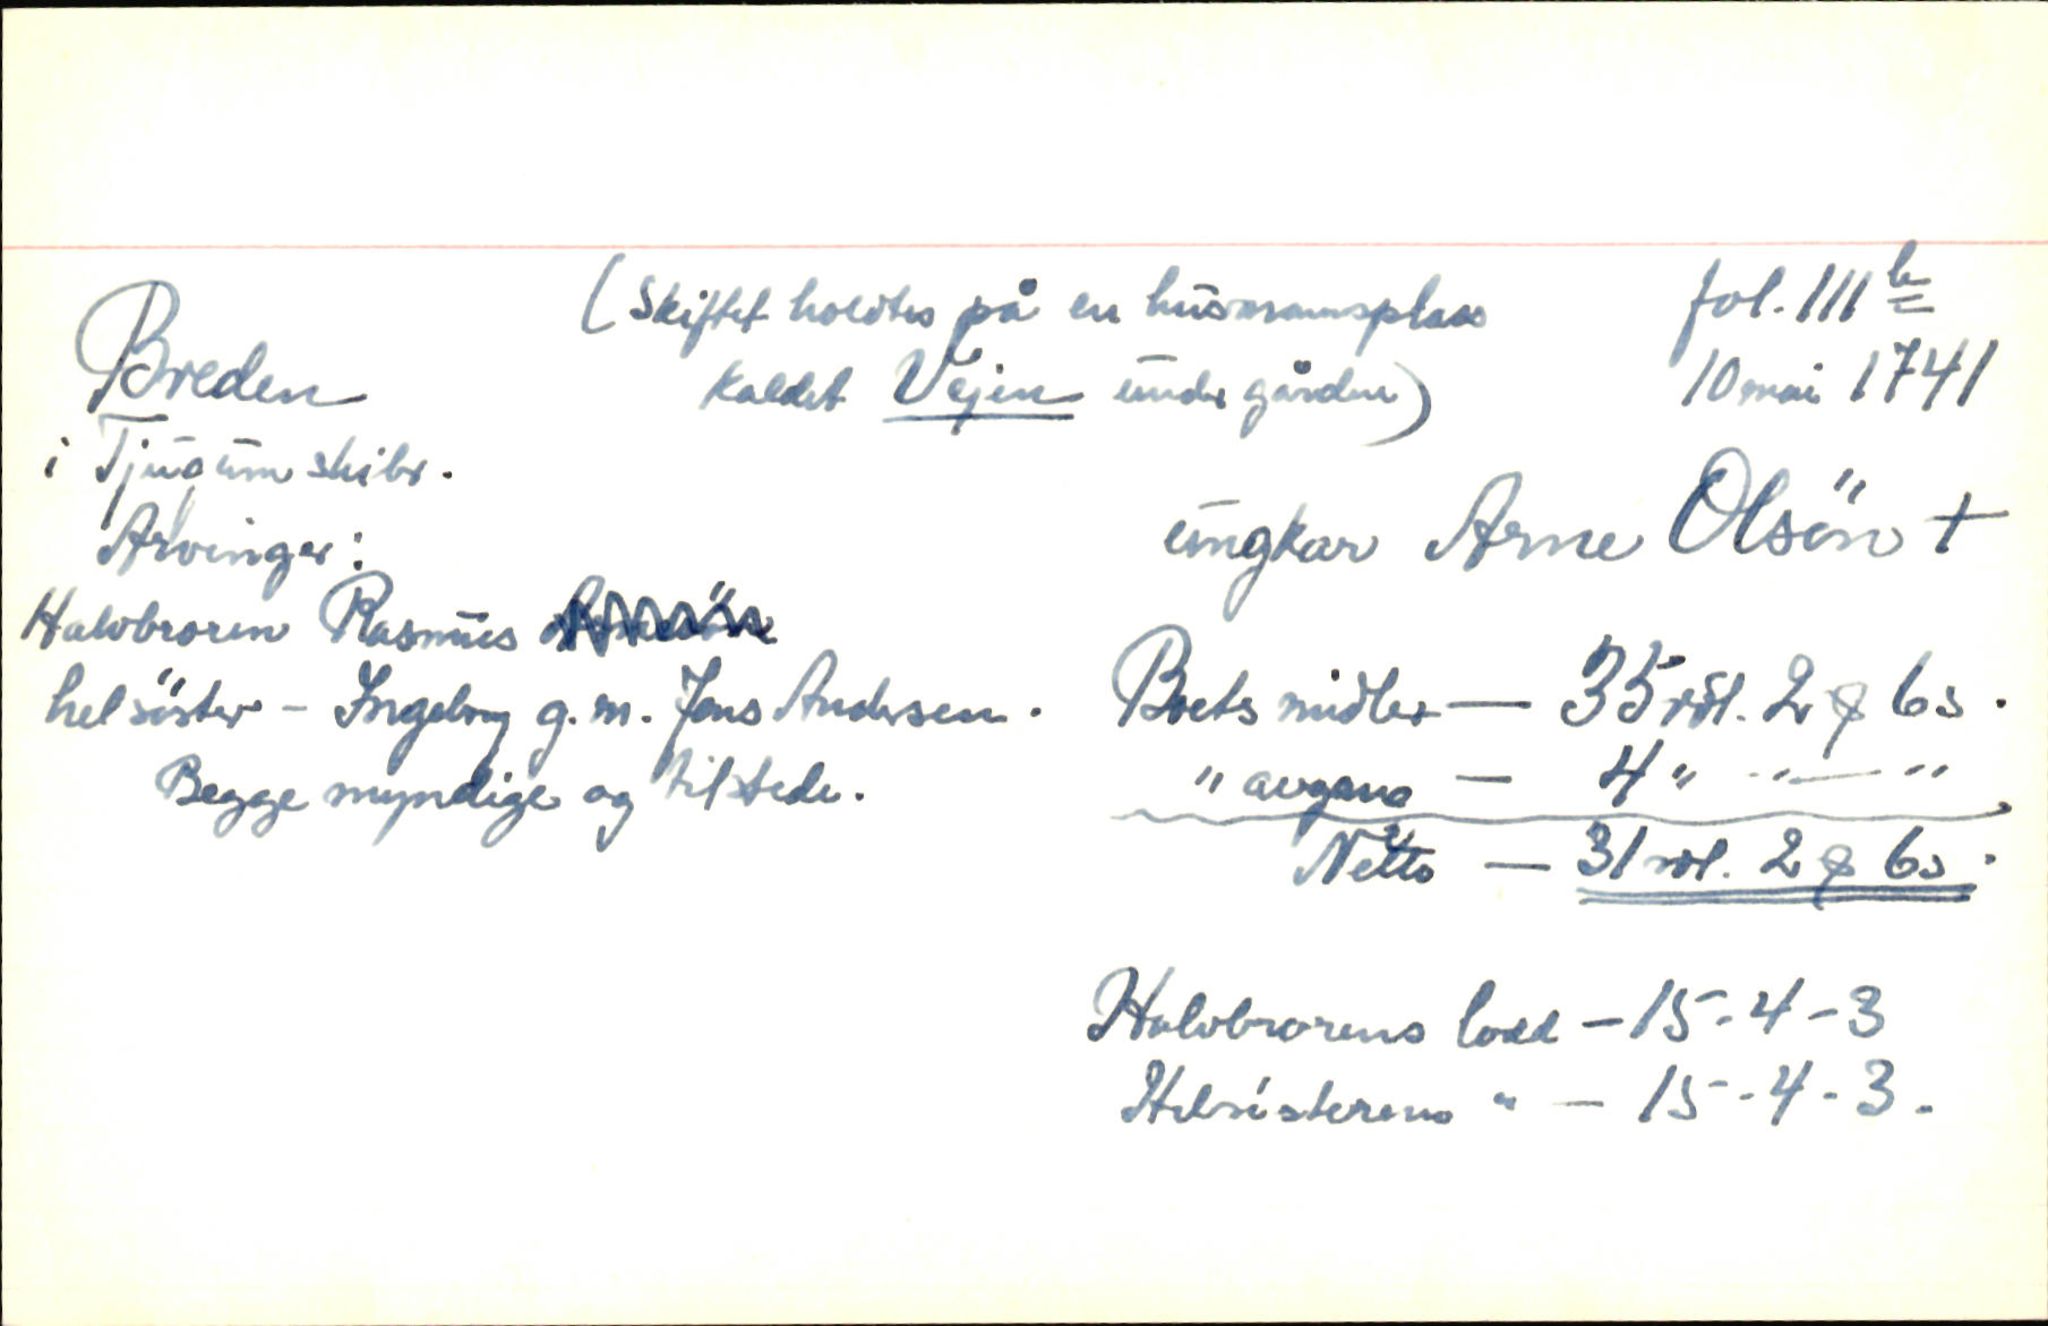 (Skiftet holdtes på en husmannsplass
kaldet Vejen under gården)
fol. 111 b
10 mai 1741
Breden
i Tjugum skibr.
ungkar Arne Olsön +
Arvinger:
Halvbroren Rasmus
helsöster - Ingeborg g. m. Jens Andersen.
Begge myndige og tilstede.
Boets midler — 35 rdl. 2 ȹ 6 s.
" avgang — 4 " " — "
Netto — 31 rdl. 2 ȹ 6 s.
Halvbrorens lodd - 15 - 4 - 3
Helsösterens " — 15 - 4 - 3.